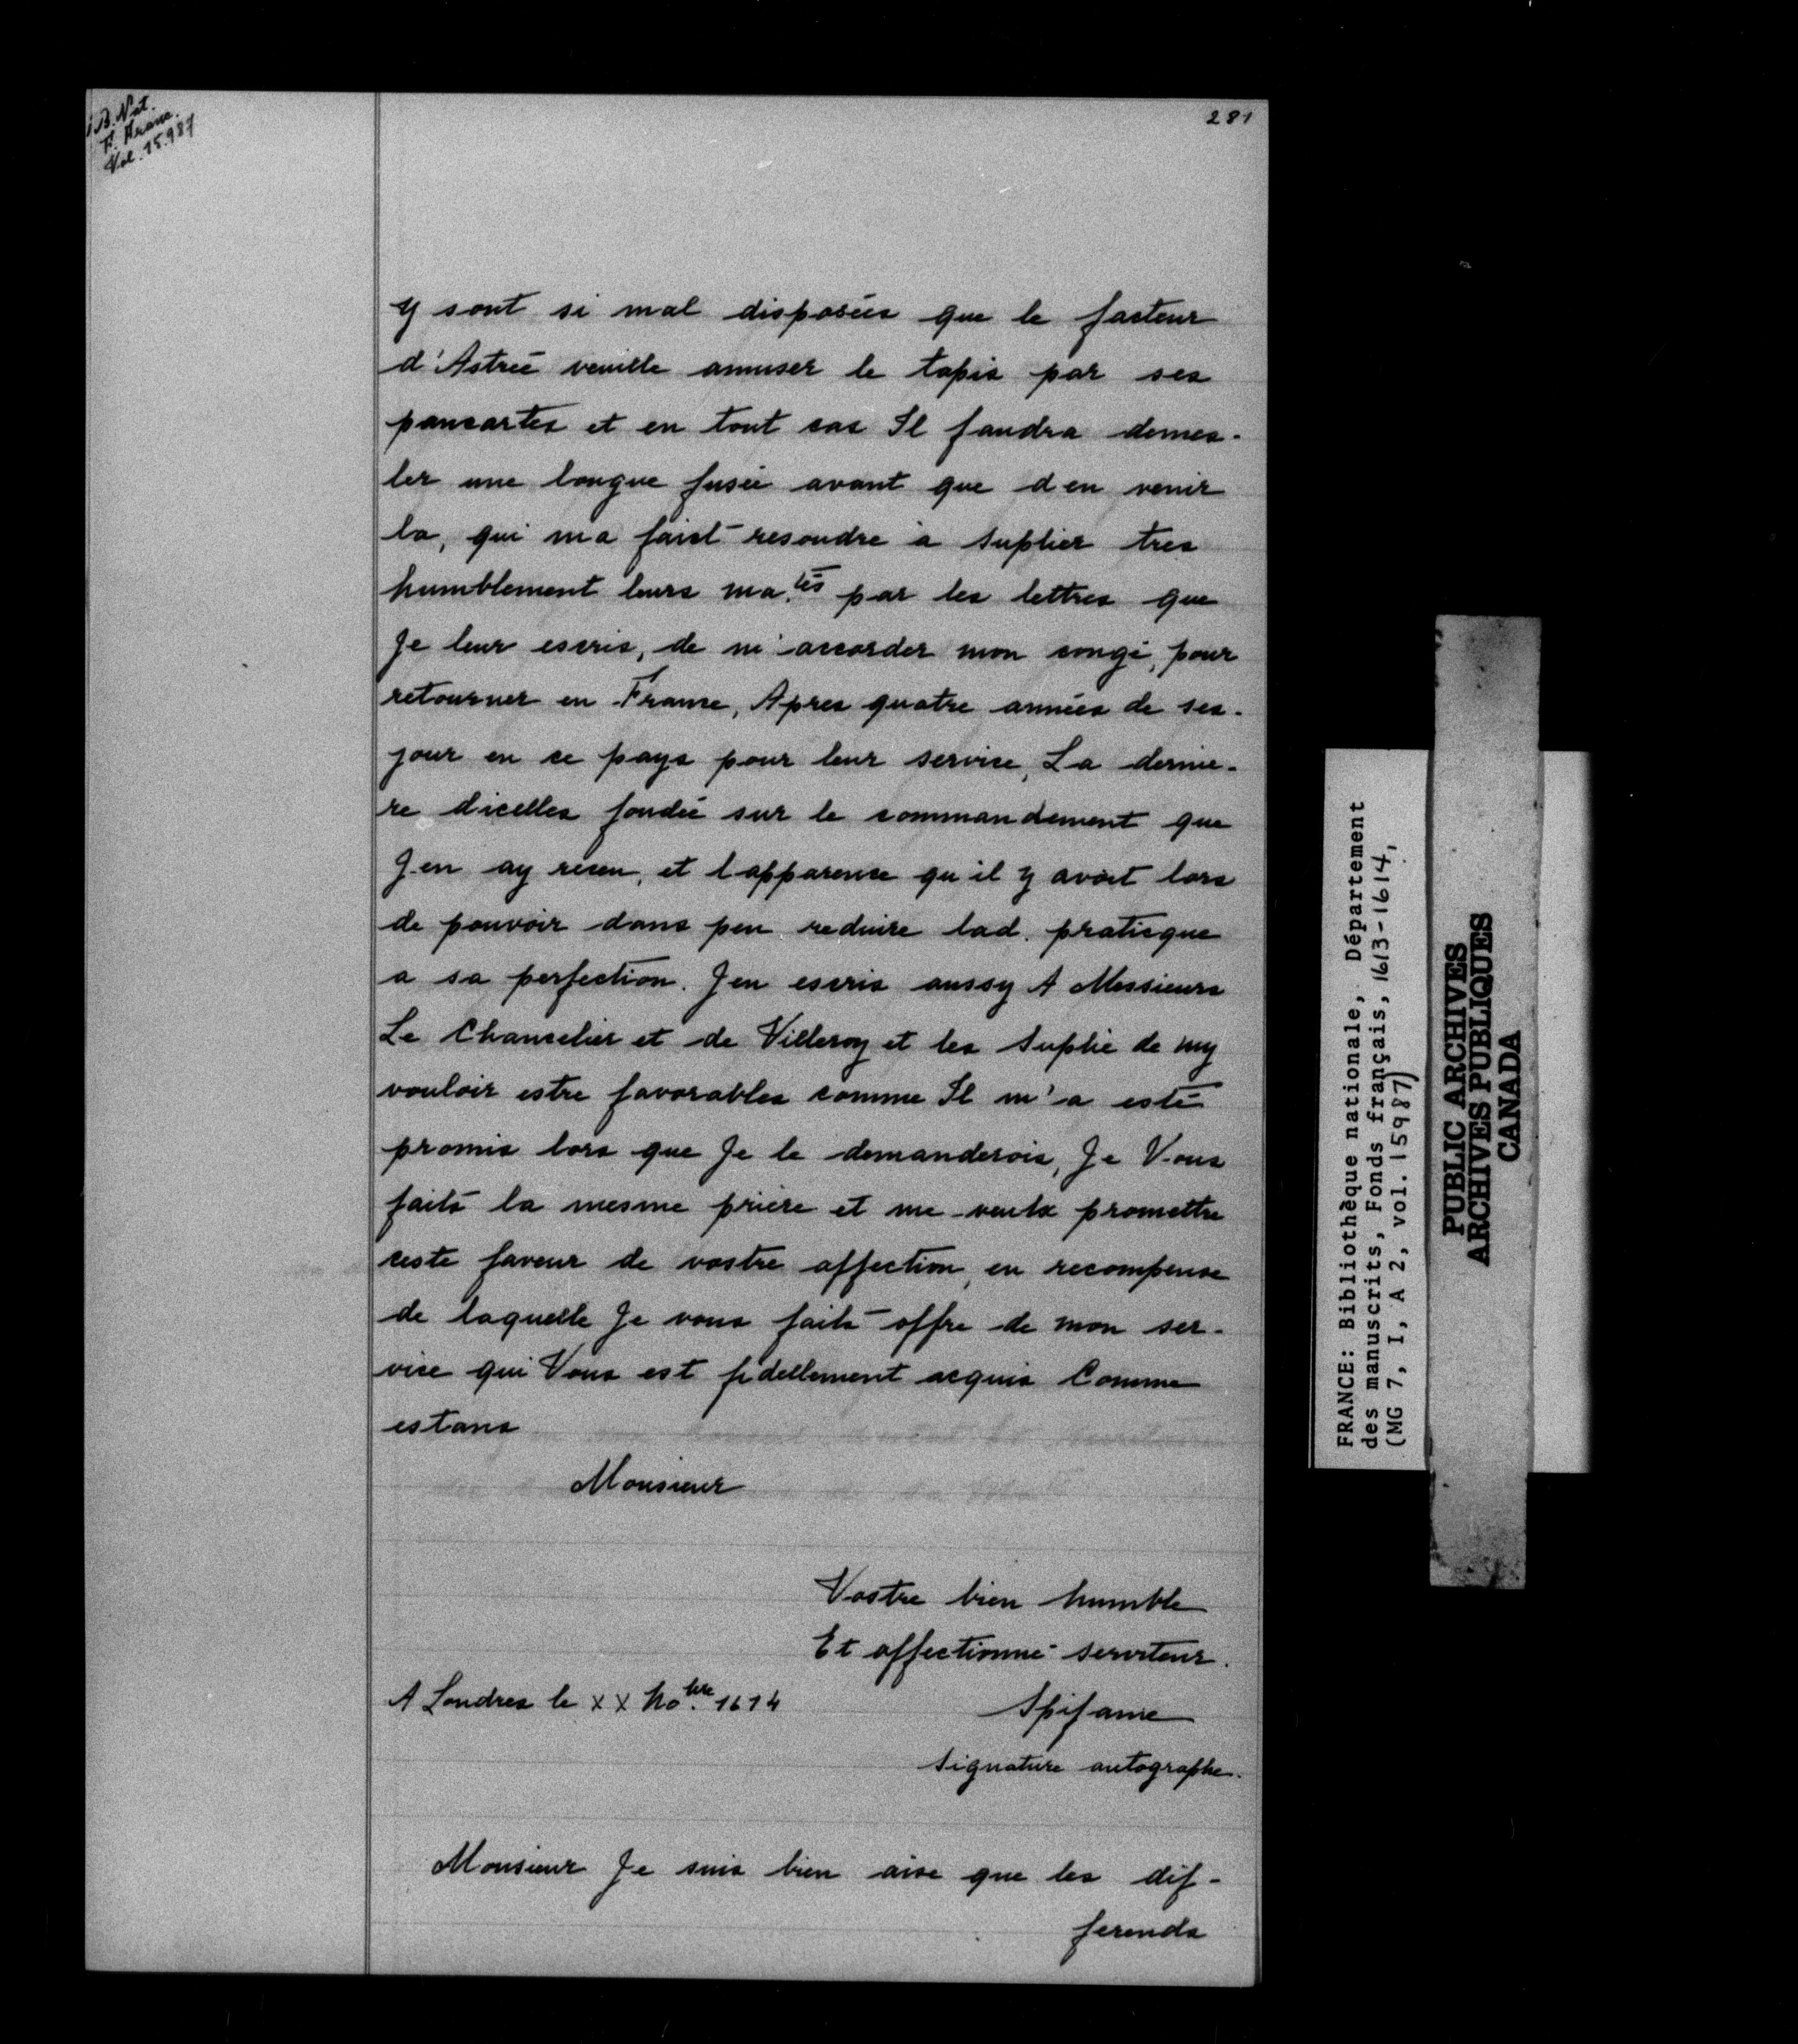 B. Nat.
F. Franc.
Vol. 15.987
281
y sont si mal disposées que le facteur
d'Astrée veuille amuser le tapis par ses
pancartes et en tout cas Il faudra demes-
ler une longue fusée avant que d en venir
la, qui m a faict resoudre à suplier tres
humblement leurs ma.tés par les lettres que
Je leur escris, de m'accorder mon congé, pour
retourner en France, Apres quatre années de ses-
jour en ce pays pour leur service, La dernie-
re dicelles fondée sur le commandement que
J en ay receu, et l apparence qu il y avoit lors
de pouvoir dans peu reduire lad. praticque
a sa perfection. J en escris aussy A Messieurs
Le Chancelier et de Villeroy et les suplie de my
vouloir estre favorables comme Il m'a esté
promis lors que Je le demanderois, Je Vous
faits la mesme priere et me veulx promettre
ceste faveur de vostre affection, en recompense
de laquelle Je vous faits offre de mon ser-
vice qui Vous est fidellement acquis Comme
estans
Monsieur
Vostre bien humble
Et affectionné serviteur.
A Londres le XX No.bre 1614
Spifame
signature autographe.
Monsieur Je suis bien aise que les dif-
ferends
FRANCE: Bibliothèque nationale, Département
des manuscrits, Fonds français, 1613-1614,
(MG 7, I, A 2, vol. 15987)
PUBLIC ARCHIVES
ARCHIVES PUBLIQUES
CANADA